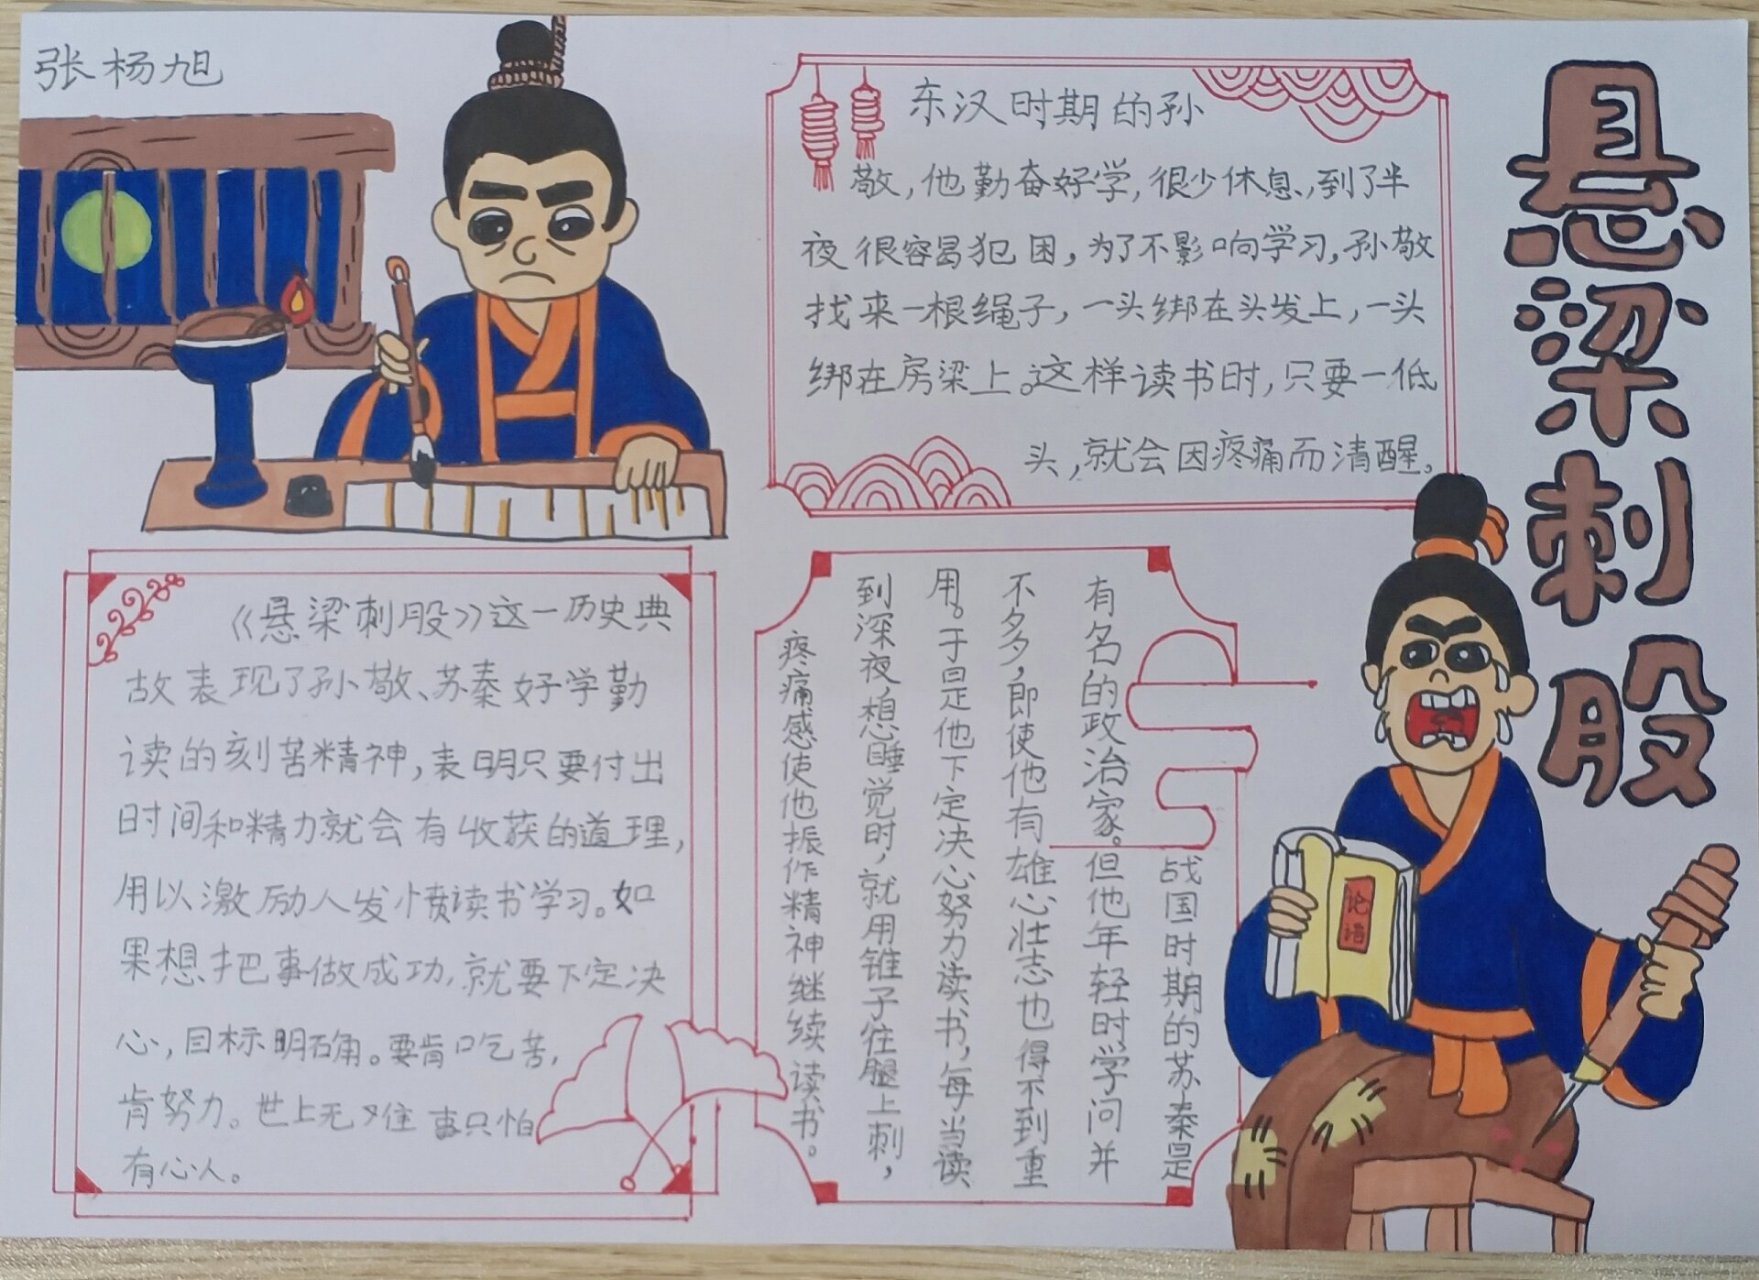 张杨旭
悬梁刺股
东汉时期的孙
敬，他勤奋好学，很少休息，到了半
夜很容易犯困，为了不影响学习，孙敬
找来一根绳子，一头绑在头发上，一头
绑在房梁上。这样读书时，只要一低
头，就会因疼痛而清醒。
战国时期的苏秦是
有名的政治家。但他年轻时学问并
不多，即使他有雄心壮志也得不到重
用。于是他下定决心努力读书，每当读
到深夜想睡觉时，就用锥子往腿上刺，
疼痛感使他振作精神继续读书。
论语
《悬梁刺股》这一历史典
故表现了孙敬、苏秦好学勤
读的刻苦精神，表明只要付出
时间和精力就会有收获的道理，
用以激励人发愤读书学习。如
果想把事做成功，就要下定决
心，目标明确。要肯吃苦，
肯努力。世上无难事只怕
有心人。